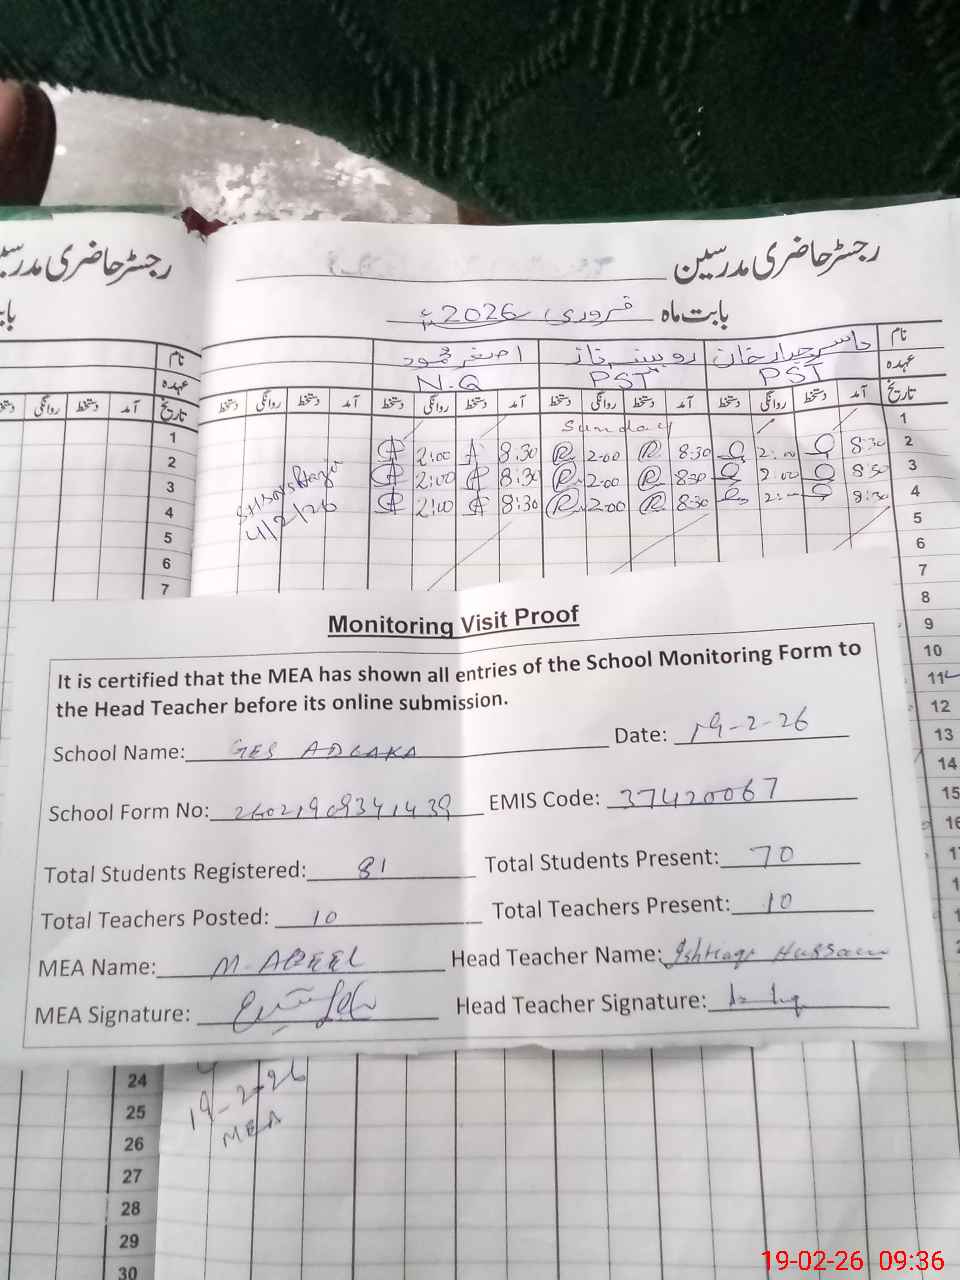 رجسٹر حاضری مدرسین
رجسٹر حاضری مدرسین
بابت ماہ فروری 2026ء
نام یاسر جبار خان روبینہ ناز اصغر محمود
عہدہ PST PST N.Q
تاریخ آمد دستخط روانگی دستخط آمد دستخط روانگی دستخط آمد دستخط روانگی دستخط آمد دستخط روانگی دستخط
نام
عہدہ
تاریخ آمد دستخط روانگی
1 Sunday
2 8:30 2:00 8:30 2:00 8:30 2:00
3 8:30 2:00 8:30 2:00 8:30 2:00
4 8:30 2:00 8:30 2:00 8:30 2:00
4/2/26
5
6
7
8
9
10
11
12
13
14
15
16
1
2
3
4
5
6
7
Monitoring Visit Proof
It is certified that the MEA has shown all entries of the School Monitoring Form to
the Head Teacher before its online submission.
School Name: GES ADLAKA Date: 19-2-26
School Form No: 26021909341439 EMIS Code: 37420067
Total Students Registered: 81 Total Students Present: 70
Total Teachers Posted: 10 Total Teachers Present: 10
MEA Name: M. AQEEL Head Teacher Name: Ishtiaq Hussain
MEA Signature: Head Teacher Signature:
24
25
26
27
28
29
30
19-2-26
MEA
19-02-26 09:36